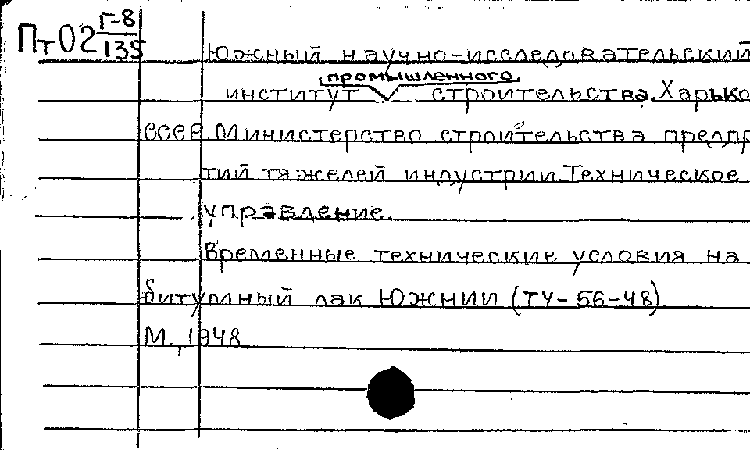 Пт02 Г-8/135
Южный научно-исследовательский
промышленного
институт строительства. Харько
СССР Министерство строительства предпр
тий тяжелой индустрии. Техническое
управление.
Временные технические условия на
битумный лак ЮЖНИИ (ТУ-56-48)
М., 1948